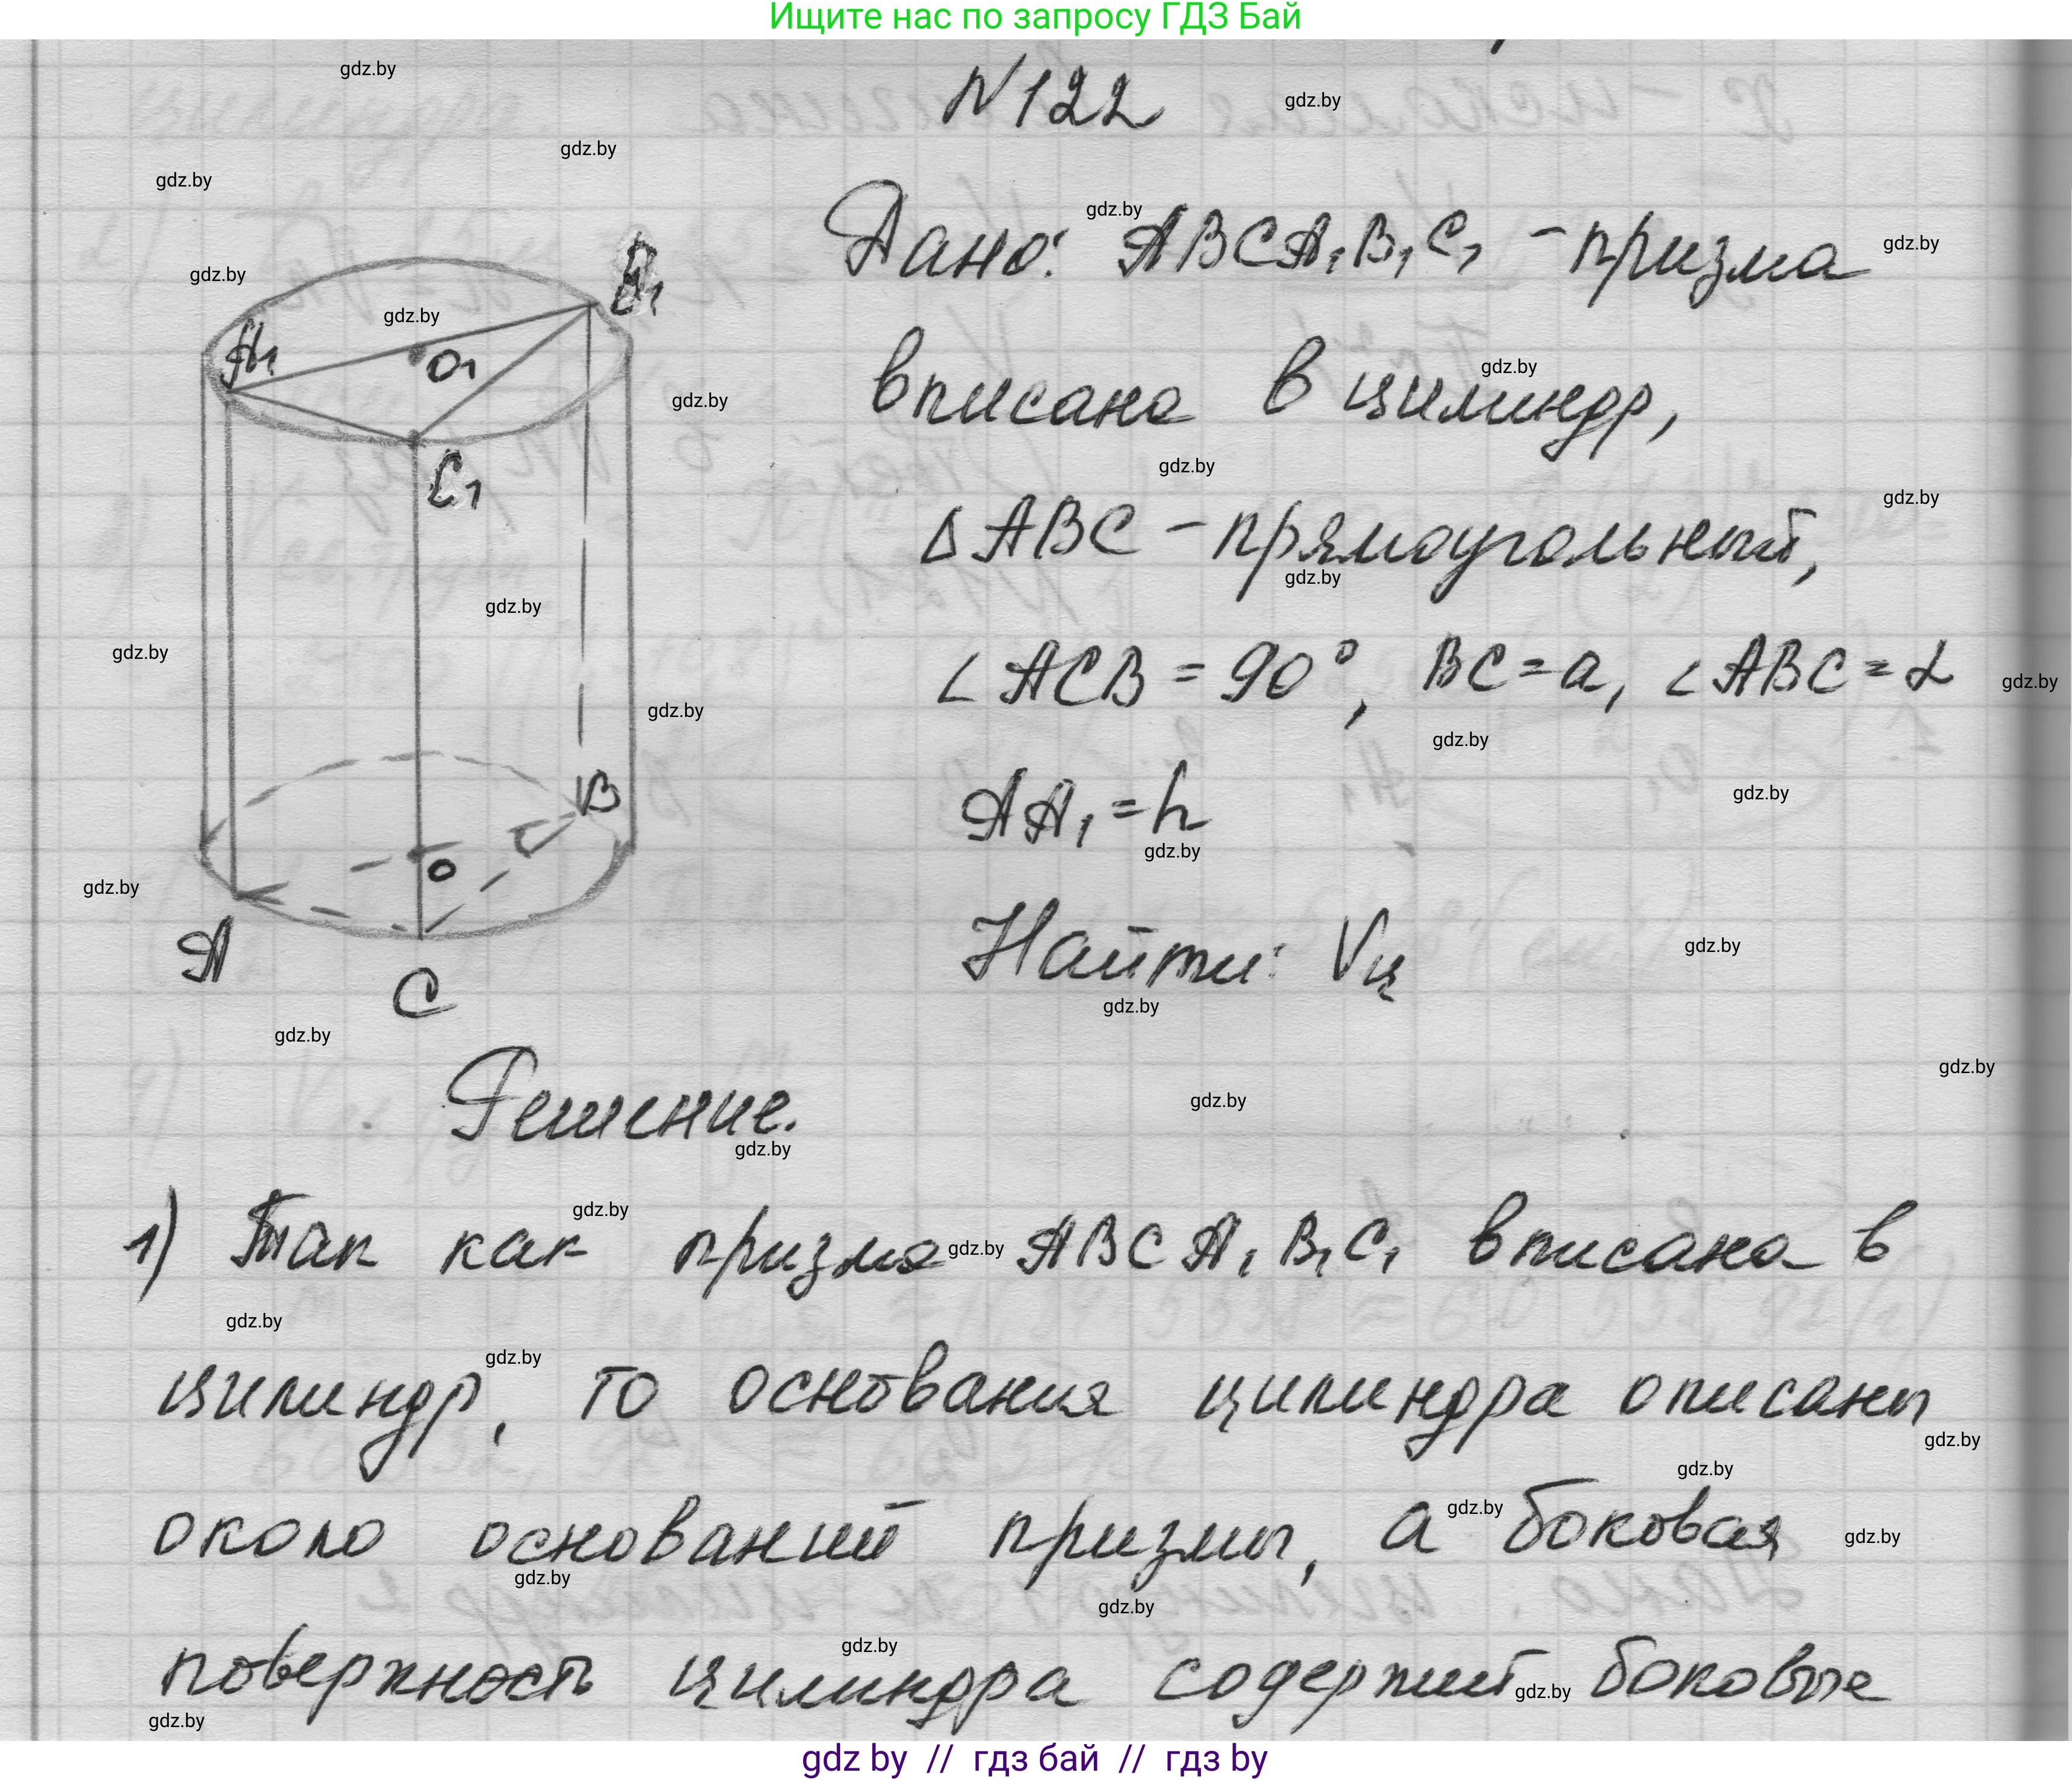 Ищите нас по запросу ГДЗ Бай
gdz.by
N122
gdz.by
gdz.by
gdz.by
gdz.by
Дано: ABCA₁B₁C₁ - призма
gdz.by
gdz.by
B₁
gdz.by
A₁
O₁
вписана в цилиндр,
gdz.by
gdz.by
C₁
gdz.by
gdz.by
Δ ABC - прямоугольный,
gdz.by
gdz.by
∠ ACB = 90°, BC = a, ∠ ABC = α
gdz.by
gdz.by
gdz.by
gdz.by
AA₁ = h
gdz.by
gdz.by
B
O
gdz.by
A
C
Найти: Vц
gdz.by
gdz.by
gdz.by
gdz.by
Решение.
gdz.by
gdz.by
1) Так как призма ABCA₁B₁C₁ вписана в
gdz.by
gdz.by
gdz.by
цилиндр, то основания цилиндра описаны
gdz.by
gdz.by
gdz.by
около оснований призмы, а боковая
gdz.by
gdz.by
gdz.by
gdz.by
поверхность цилиндра содержит боковые
gdz.by
gdz.by
gdz.by
gdz by // гдз бай // гдз by